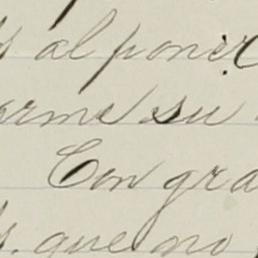 s al poner
orme su
Con gra
s. que no